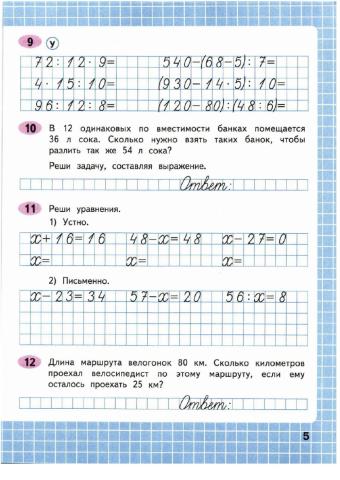 9 у
72:12·9= 540-(68-5):7=
4·15:10= (930-14·5):10=
96:12:8= (120-80):(48:6)=
10 В 12 одинаковых по вместимости банках помещается
36 л сока. Сколько нужно взять таких банок, чтобы
разлить так же 54 л сока?
Реши задачу, составляя выражение.
Ответ:
11 Реши уравнения.
1) Устно.
x+16=16 48-x=48 x-27=0
x= x= x=
2) Письменно.
x-23=34 57-x=20 56:x=8
12 Длина маршрута велогонок 80 км. Сколько километров
проехал велосипедист по этому маршруту, если ему
осталось проехать 25 км?
Ответ:
5